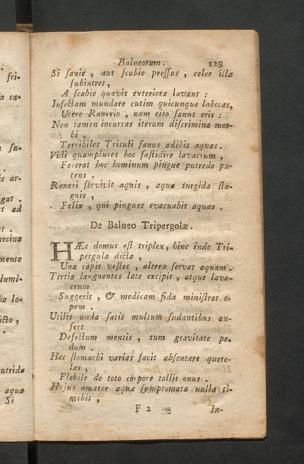 fri-
ra ca-
fu-
is ar-
gat.
et ad
ircina
mento
lumi-
ba lo-
isto,
utride
aqua
Si
Balneorum. 123
Si sanie, aut scabie pressus, celer illa
subintret,
A scabie quavis exteriora lavant:
Infectam mundare cutim quicunque laboras,
Utere Ranerio, nam cito sanus eris:
Non tamen incurras iterum discrimina mor-
bi,
Terribiles Trituli sanus adibis aquas.
Vidi quamplures hoc fastidire lavacrum,
Fecerat hoc hominum pingue putredo pu-
tens.
Raneri servivit aquis, aqua turgida sta-
gnis,
Felix, qui pinguet evacuabit aquas.
De Balneo Tripergolæ.
HÆc domus est triplex, hinc inde Tri-
pergula dicta,
Una capit vestes, altera servat aquam.
Tertia languentes late excipit, atque lava-
crum
Suggerit, & medicam fida ministrat o-
pem.
Utilis unda satis multum sudantibus au-
fert
Defectum mentis, tum gravitate pe-
dum.
Hæc stomachi varias facit absentare quere-
las,
Flebile de toto corpore tollit onus.
Hujus amator aquæ symptomata nulla ti-
mebit,
F 2 In-